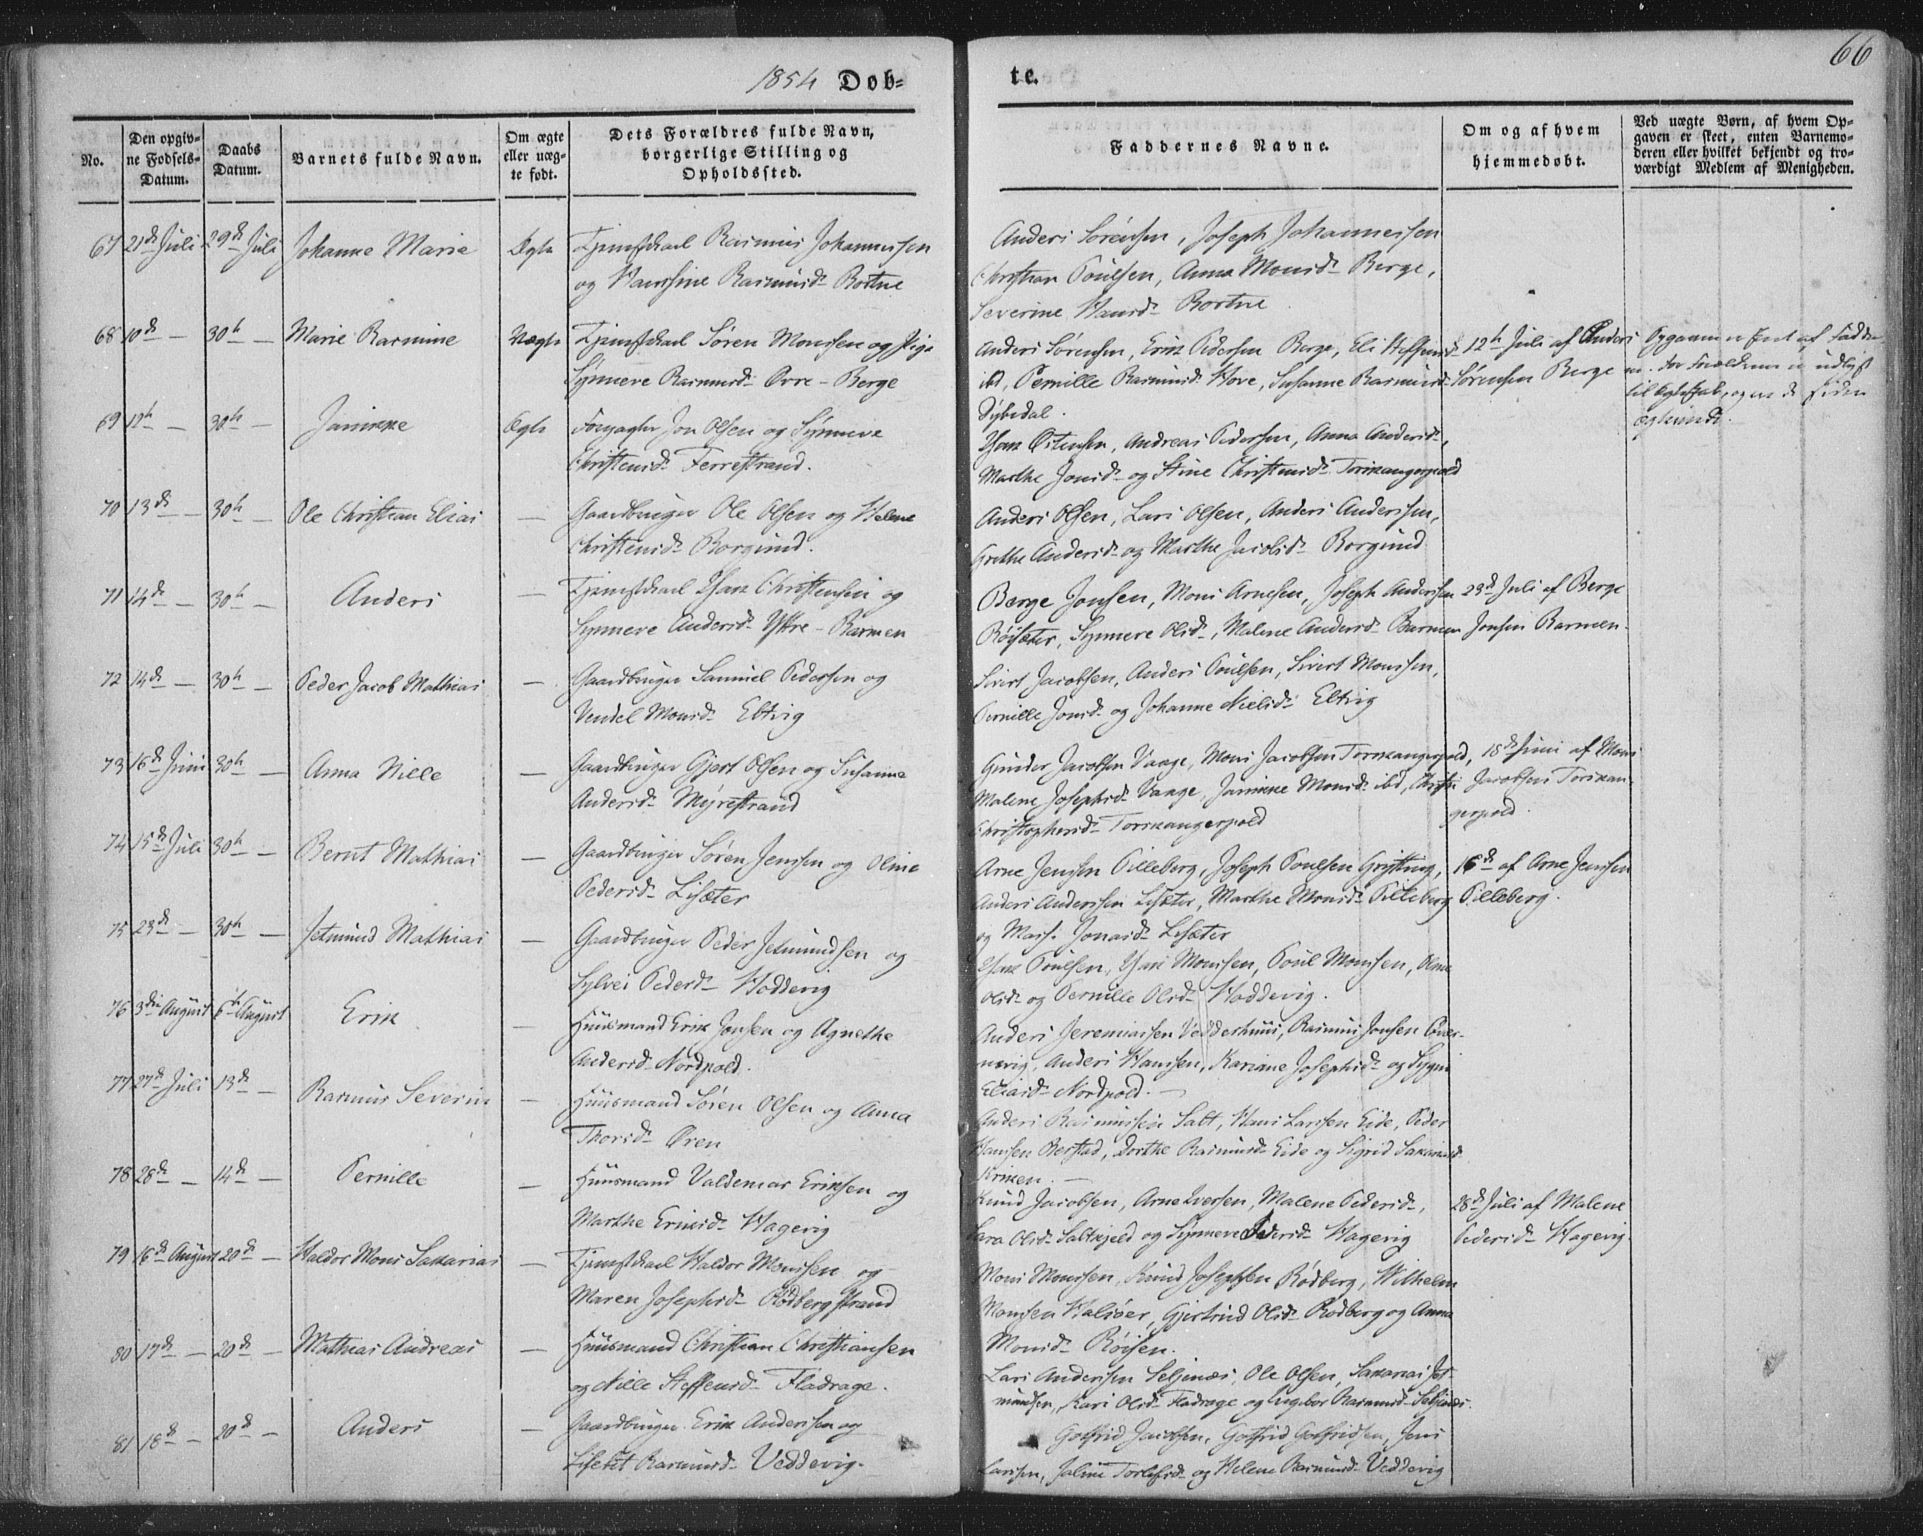 1854 Døb-
te.
66
No.
Den opgiv-
ne Fødsels-
Datum.
Daabs
Datum.
Barnets fulde Navn.
Om ægte
eller uæg-
te født.
Dets Forældres fulde Navn,
borgerlige Stilling og
Opholdssted.
Faddernes Navne.
Om og af hvem
hjemmedøbt.
Ved uægte Børn, af hvem Op-
gaven er skeet, enten Barnemo-
deren eller hvilket bekjendt og tro-
værdigt Medlem af Menigheden.
67 21de Juli 29de Juli Johanne Marie Ægte Tjenestekarl Rasmus Johannessen
og Hansine Rasmusd. Bortne
Anders Sørensen, Joseph Johannessen
Christian Poulsen, Anna Monsd. Berge,
Severine Hansd. Bortne.
68 10de — 30te — Marie Rasmine Uægte Tjenestekarl Søren Monsen og Pige
Synneve Rasmusd. Øvre-Berge
Anders Sørensen, Erik Pedersen Berge, Eli Steffensd.
ibd, Pernille Rasmusd. Hove, Susanne Rasmusd.
Dybedal.
12te Juli af Anders
Sørensen Berge
Opgaven er skeet af Fadder-
ne. For Forældrene er udlyst
til Ægteskab, og ere de siden
69 10de — 30te — Jannikke Ægte Forpagter Jon Olsen og Synneve
Christensd. Ferrestrand.
Hans Østensen, Andreas Pedersen, Anna Andersd.,
Marthe Jonsd. og Stine Christensd. Torskangerpold
70 13de — 30te — Ole Christian Elias — Gaardbruger Ole Olsen og Helene
Christensd. Borgund.
Anders Olsen, Lars Olsen, Anders Andersen,
Grethe Andersd. og Marthe Jacobsd. Borgund
71 14de — 30te — Anders — Tjenestekarl Hans Christensen og
Synneve Andersd. Ytre-Barmen
Børge Jonsen, Mons Arnesen, Joseph Andersen
Røisæter, Synneve Olsd., Malene Andersd. Barmen
23de Juli af Berge
Jonsen Barmen.
72 14de — 30te — Peder Jacob Mathias — Gaardbruger Samuel Pedersen og
Vendel Monsd. Eltvig
Sivert Jacobsen, Anders Poulsen, Sivert Monsen,
Pernille Jonsd. og Johanne Nielsd. Eltvig
73 16de Juni 30te — Anna Nille — Gaardbruger Gjert Olsen og Susanne
Andersd. Myrestrand
Gunder Jacobsen Vaage, Mons Jacobsen Torskangerpold,
Malene Josephsd. Vaage, Jannike Monsd. ibd,
Christophersd. Torskangerpold
18de Juni af Mons
Jacobsen Torskan-
gerpold
74 15de Juli 30te — Bernt Mathias — Gaardbruger Søren Jensen og Oline
Pedersd. Lisæter
Arne Jensen Pilleberg, Joseph Poulsen Grytting,
Anders Andersen Lisæter, Marthe Monsd. Pilleberg
og Mari Jonasd. Lisæter
16de af Arne Jensen
Pilleberg.
75 23de — 30te — Jetmund Mathias — Gaardbruger Peder Jetmundsen og
Sylvei Pedersd. Hoddevig
Hans Poulsen, Hans Monsen, Poul Monsen,
Olsd. og Pernille Olsd. Hoddevig.
76 3die August 6te August Erik — Huusmand Erik Jonsen og Agnethe
Andersd. Nordpold.
Anders Jeremiassen Vedderhuus, Rasmus Jonsen
Anders Hansen, Kariane Josephsd. og
Eliasd. Nordpold.
77 27de Juli 13de — Rasmus Severin — Huusmand Søren Olsen og Anna
Thorsd. Øren
Anders Rasmussen Salt, Hans Larsen Eide, Peder
Hansen Berstad, Dorthe Rasmusd. Eide og Sigrid Sakariasd.
78 28de — 14de — Pernille — Huusmand Valdemar Eriksen og
Marthe Eriksd. Hagevig
Knud Jacobsen, Arne Iversen, Malene Pedersd.,
Sara Olsd. Saltkjeld og Synneve Pedersd. Hagevig
28de Juli af Malene
Pedersd. Hagevig
79 16de August 20de — Haldor Mons Sakarias — Tjenestekarl Haldor Monsen og
Maren Josephsd. Rødbergstrand
Mons Monsen, Knud Josephsen Rødberg, Wilhelm
Monsen Halsøer, Gjertrud Olsd. Rødberg og Anna
Monsd. Røisen.
80 17de — 20de — Mathias Andreas — Huusmand Christian Christiansen
og Nille Steffensd. Fladrage.
Lars Andersen Seljenes, Ole Olsen, Sakarias Jet-
mundsen, Kari Olsd. Fladrage og Ingbor Rasmusd. Seljenes.
81 18de — 20de — Anders — Gaardbruger Erik Andersen og
Lisebet Rasmusd. Veddevig.
Gotfrid Jacobsen, Gotfrid Gotfridsen, Jens
Larsen, Jaline Torlefsd. og Helene Rasmusd. Veddevig